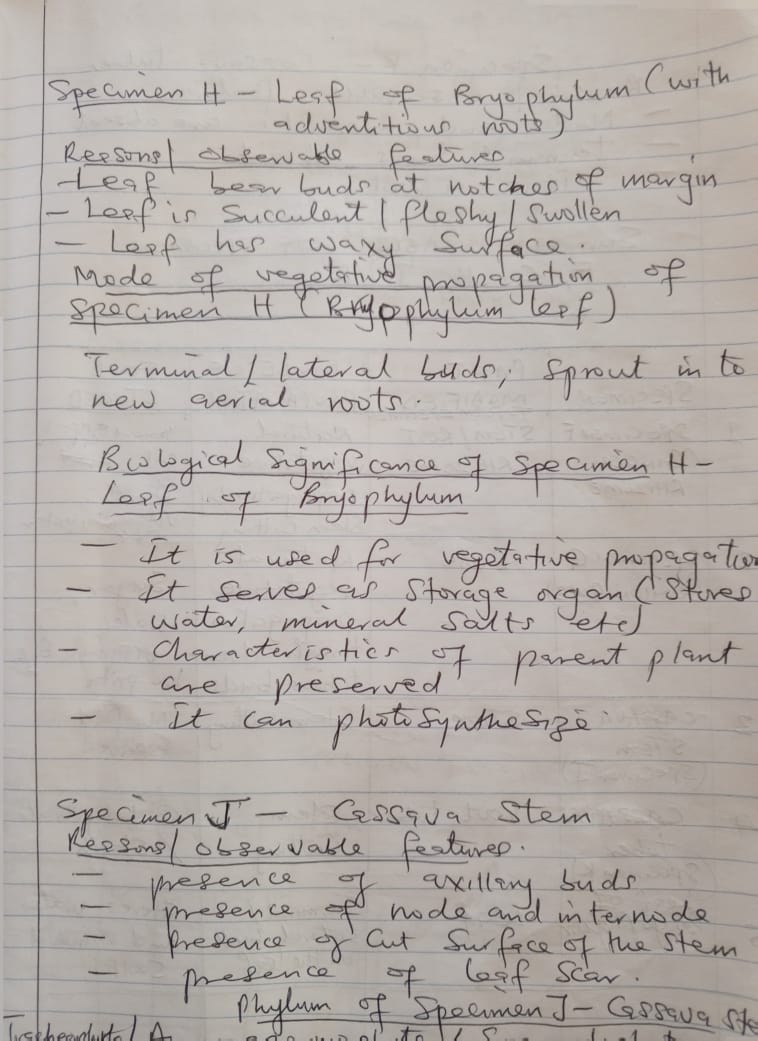 Specimen H - Leaf of Bryophylum (with
adventitious roots)
Reasons/ observable features
-Leaf bear buds at notches of margin
- Leaf is Succulent / fleshy / swollen
- Leaf has waxy Surface.
Mode of vegetative propagation of
Specimen H (Bryophylum leaf)
Terminal / lateral buds, Sprout in to
new aerial roots.
Biological Significance of Specimen H -
Leaf of Bryophylum
- It is used for vegetative propagation
- It serves as Storage organ (Stores
water, mineral Salts etc)
- Characteristics of parent plant
are preserved
- It can photosynthesize
Specimen J - Cassava Stem
Reasons/ observable features.
- presence of axillary buds
- presence of node and internode
- Presence of Cut Surface of the Stem
- presence of leaf Scar.
Phylum of Specimen J - Cassava Ste